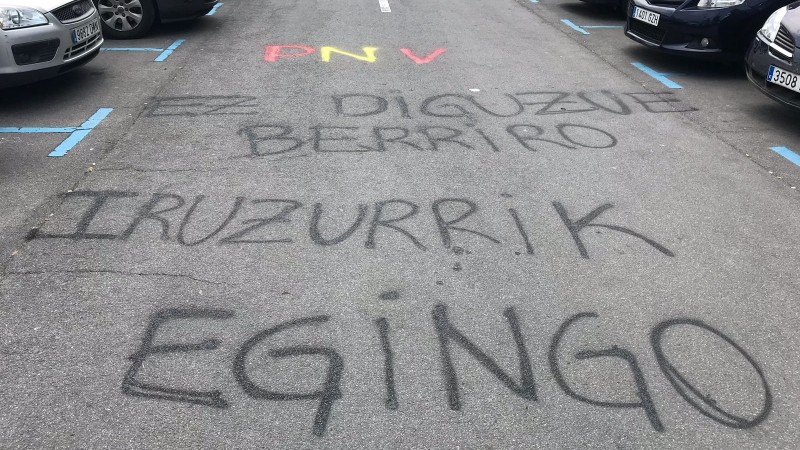 PNV
EZ DiGUZUE
BERRiRO
IRUZURRiK
EGiNGO
3508